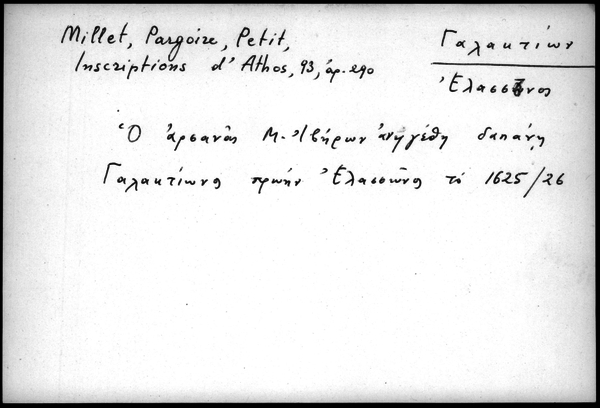 Millet, Pargoire, Petit,
Inscriptions d'Athos, 93, ἀρ. 290
Γαλακτίων
Ἐλασσῶνος
Ὁ ἀρσανᾶς Μ. Ἰβήρων ἀνηγέθη δαπάνῃ
Γαλακτίωνος πρώην Ἐλασσῶνος τό 1625/26